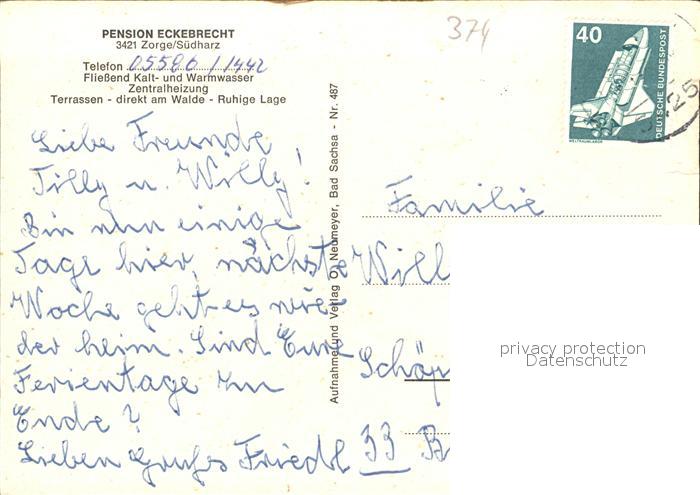 PENSION ECKEBRECHT
3421 Zorge/Südharz
Telefon 05586 / 1442
Fließend Kalt- und Warmwasser
Zentralheizung
Terrassen - direkt am Walde - Ruhige Lage
Liebe Freunde
Tilly u. Willy!
Bin nun einige
Tage hier, nächste
Woche geht es wie
der heim. Sind Eure
Ferientage zu
Ende?
Lieben Gruß Friedl
Aufnahme und Verlag O. Neumeyer, Bad Sachsa - Nr. 487
374
40
DEUTSCHE BUNDESPOST
WELTRAUMLABOR
25
Familie
Will
Schöp
33 B
privacy protection
Datenschutz